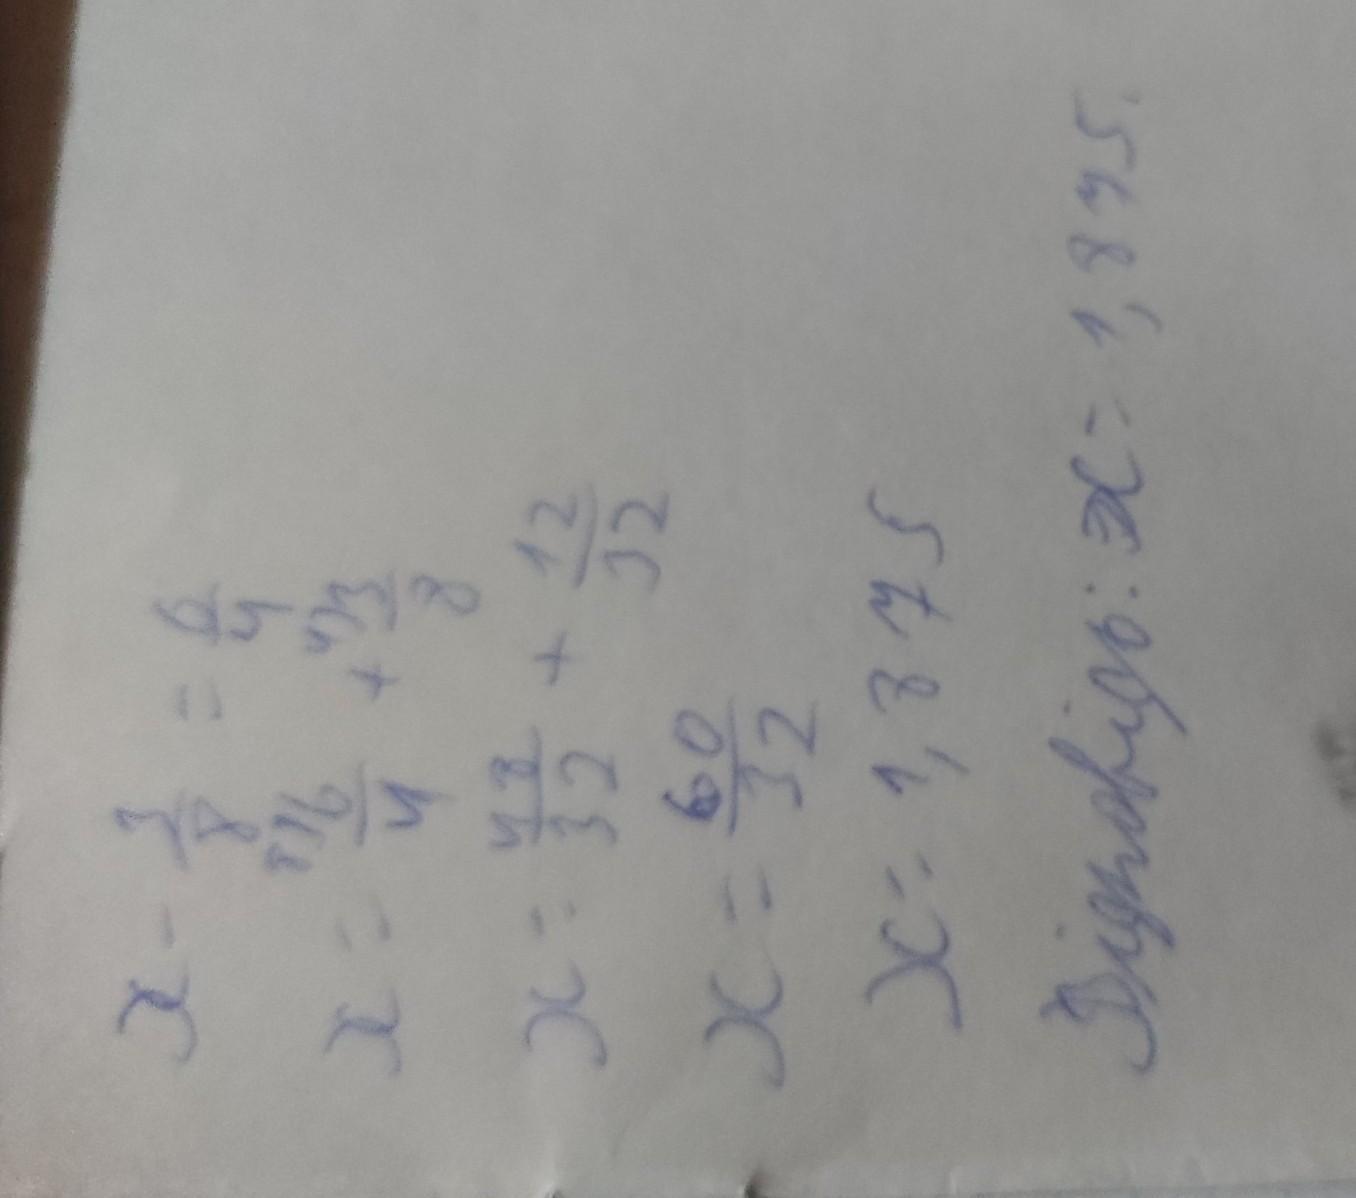 x - 3/8 = 6/4
x = 8\6/4 + 4\3/8
x = 48/32 + 12/32
x = 60/32
x = 1,875
Відповідь: x = 1,875.